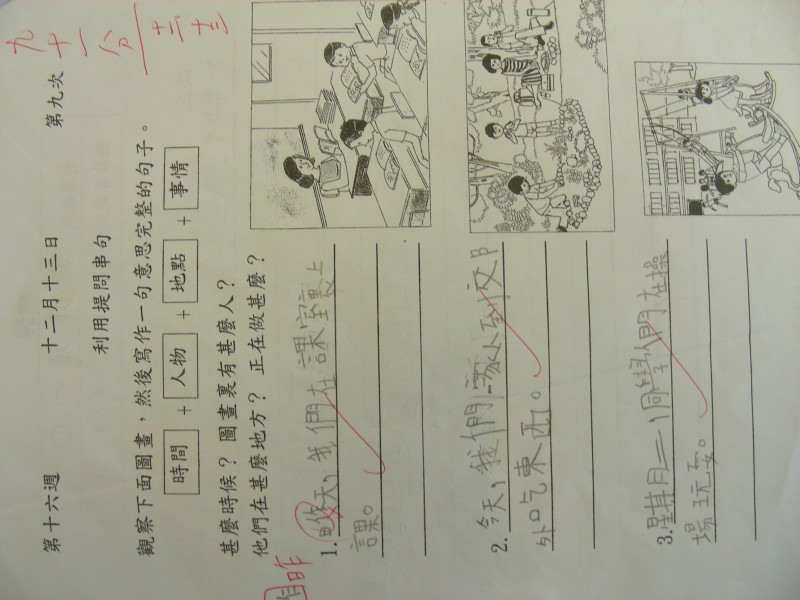 九十一分 十二 十三
第十六週 十二月十三日 第九次
利用提問串句
觀察下面圖畫，然後寫作一句意思完整的句子。
時間 + 人物 + 地點 + 事情
甚麼時候？圖畫裏有甚麼人？
他們在甚麼地方？正在做甚麼？
昨
1. 昨天，我們在課室裏上
課。
2. 今天，我們一家人到郊
外吃東西。
3. 星期二，同學們在操
場玩耍。